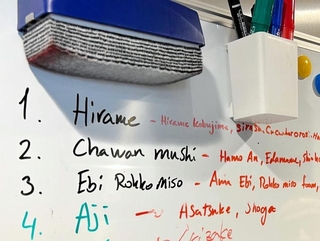 1. Hirame - Hirame Kobujime,
2. Chawan mushi - Hamo An, Edamame,
3. Ebi Rokko miso - Ama Ebi, Rokko miso
4. Aji - Asatsuke, Shoga